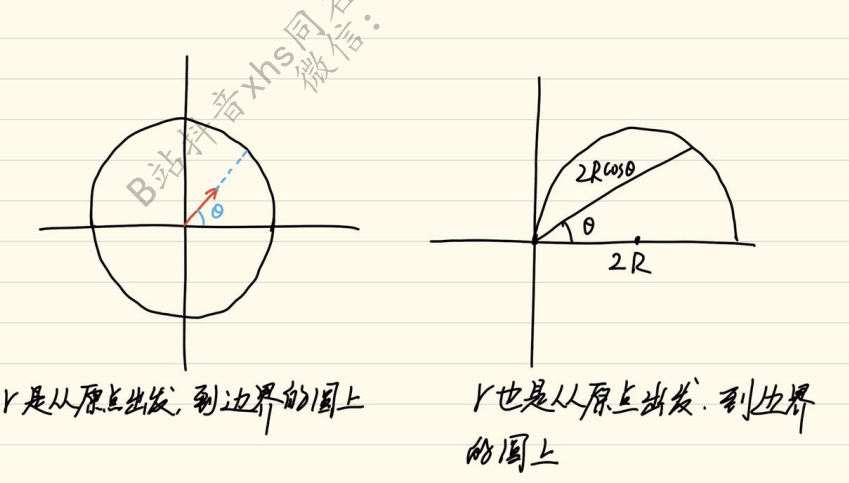 B站抖音xhs同名
微信:
θ
2Rcosθ
θ
2R
r是从原点出发,到边界的圆上
r也是从原点出发.到边界
的圆上